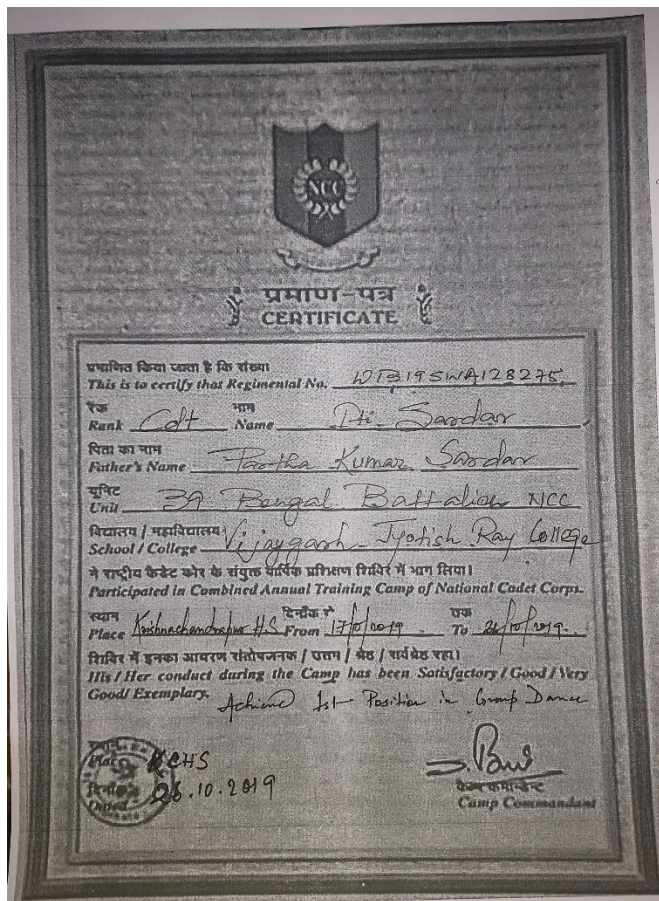 NCC
प्रमाण-पत्र
CERTIFICATE
प्रमाणित किया जाता है कि संख्या
This is to certify that Regimental No. WB19SWA128275
रैंक नाम
Rank Cdt Name Sardar
पिता का नाम
Father's Name Partha Kumar Sardar
यूनिट
Unit 39 Bengal Battalion NCC
विद्यालय / महाविद्यालय
School / College Vijaygarh Jyotish Ray College
ने राष्ट्रीय कैडेट कोर के संयुक्त वार्षिक प्रशिक्षण शिविर में भाग लिया।
Participated in Combined Annual Training Camp of National Cadet Corps.
स्थान दिनाँक से एक
Place Krishnachandrapur H.S From 17/10/2019 To /10/2019
शिविर में इनका आचरण संतोषजनक / उत्तम / श्रेष्ठ / सर्वश्रेष्ठ रहा।
His / Her conduct during the Camp has been Satisfactory / Good / Very
Good / Exemplary. Achieved 1st Position in Group Dance
Place KCHS
दिनाँक
Dated 26.10.2019
कैम्प कमान्डेन्ट
Camp Commandant